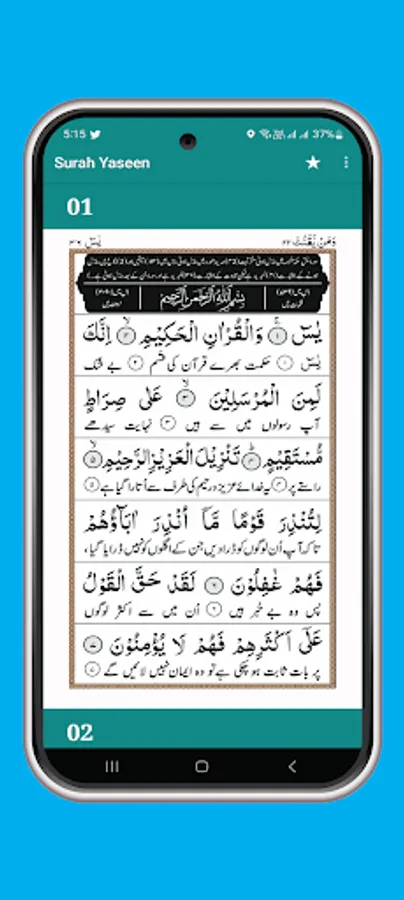 5:15 37%
Surah Yaseen
01
وَمَنْ يَّقْنُتْ ٢٢ يٰسٓ ٣٦
بِسْمِ اللّٰهِ الرَّحْمٰنِ الرَّحِيْمِ
يٰسٓ ۚ ۝۱ وَالْقُرْاٰنِ الْحَكِيْمِ ۙ ۝۲ اِنَّكَ
یٰسٓ ۝۱ حکمت بھرے قرآن کی قسم ۝۲ بے شک
لَمِنَ الْمُرْسَلِيْنَ ۙ ۝۳ عَلٰى صِرَاطٍ
آپ رسولوں میں سے ہیں ۝۳ نہایت سیدھے
مُّسْتَقِيْمٍ ؕ ۝۴ تَنْزِيْلَ الْعَزِيْزِ الرَّحِيْمِ ۙ ۝۵
راستے پر ۝۴ یہ خدائے عزیز و رحیم کی طرف سے اُتارا گیا ہے ۝۵
لِتُنْذِرَ قَوْمًا مَّاۤ اُنْذِرَ اٰبَآؤُهُمْ
تا کہ آپ اُن لوگوں کو ڈرا دیں جن کے اگلوں کو نہیں ڈرایا گیا،
فَهُمْ غٰفِلُوْنَ ۝۶ لَقَدْ حَقَّ الْقَوْلُ
پس وہ بے خبر ہیں ۝۶ اُن میں سے اکثر لوگوں
عَلٰۤى اَكْثَرِهِمْ فَهُمْ لَا يُؤْمِنُوْنَ ۝۷
پر بات ثابت ہو چکی ہے تو وہ ایمان نہیں لائیں گے ۝۷
02